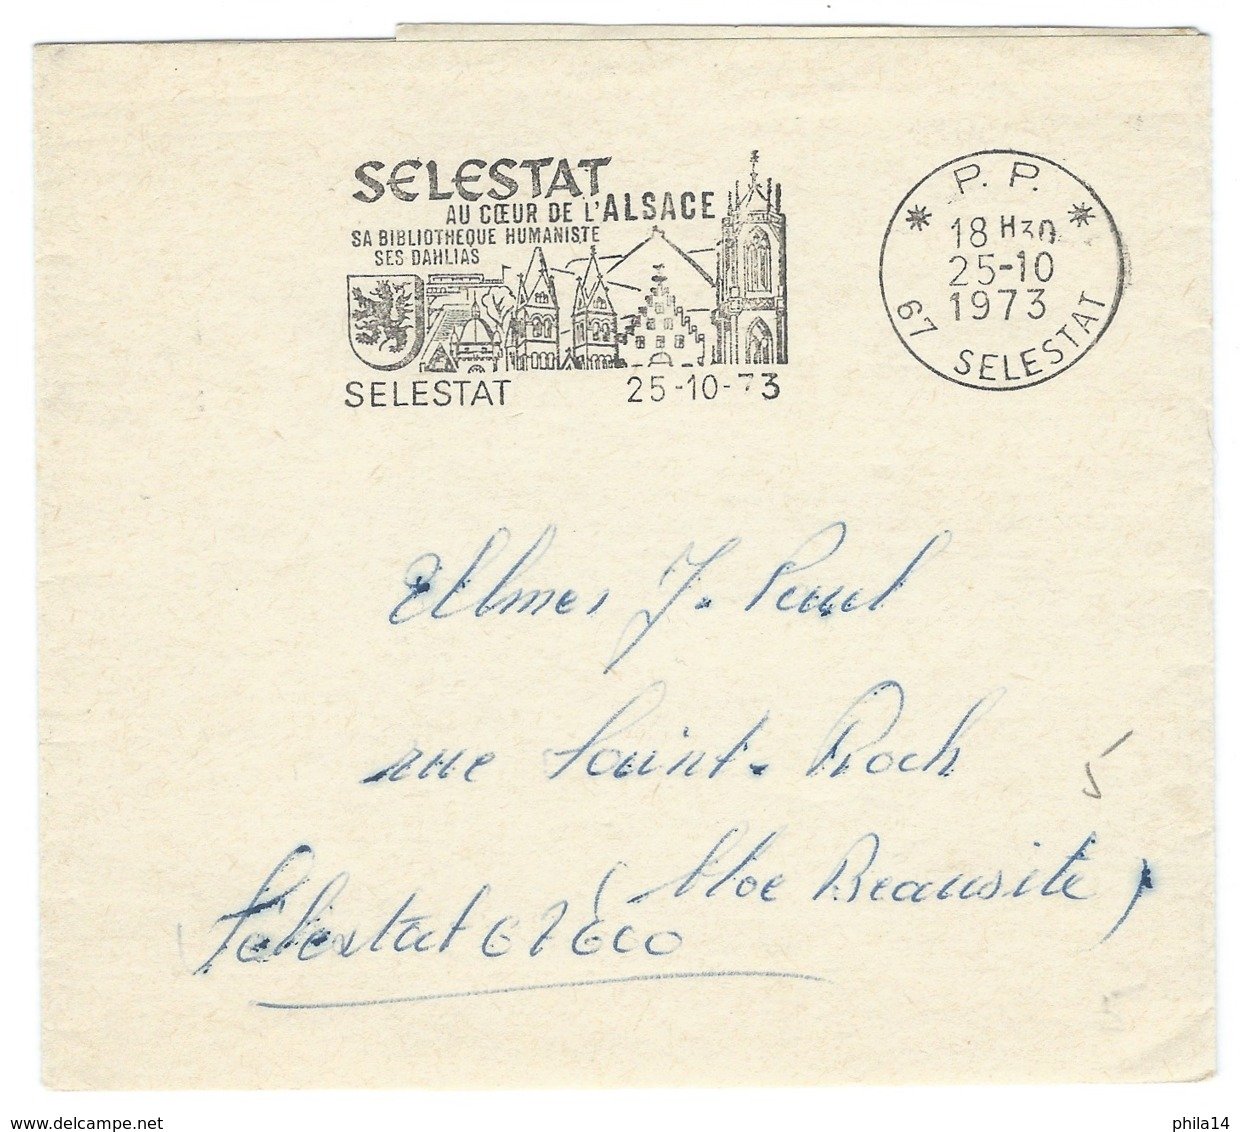 SELESTAT
AU CŒUR DE L'ALSACE
SA BIBLIOTHEQUE HUMANISTE
SES DAHLIAS
SELESTAT 25-10-73
P. P.
18 H30
25-10
1973
67 SELESTAT
Ellmer J. Paul
rue Saint-Roch
5
(Bloc Beausite)
Sélestat 67600
5
www.delcampe.net
phila14